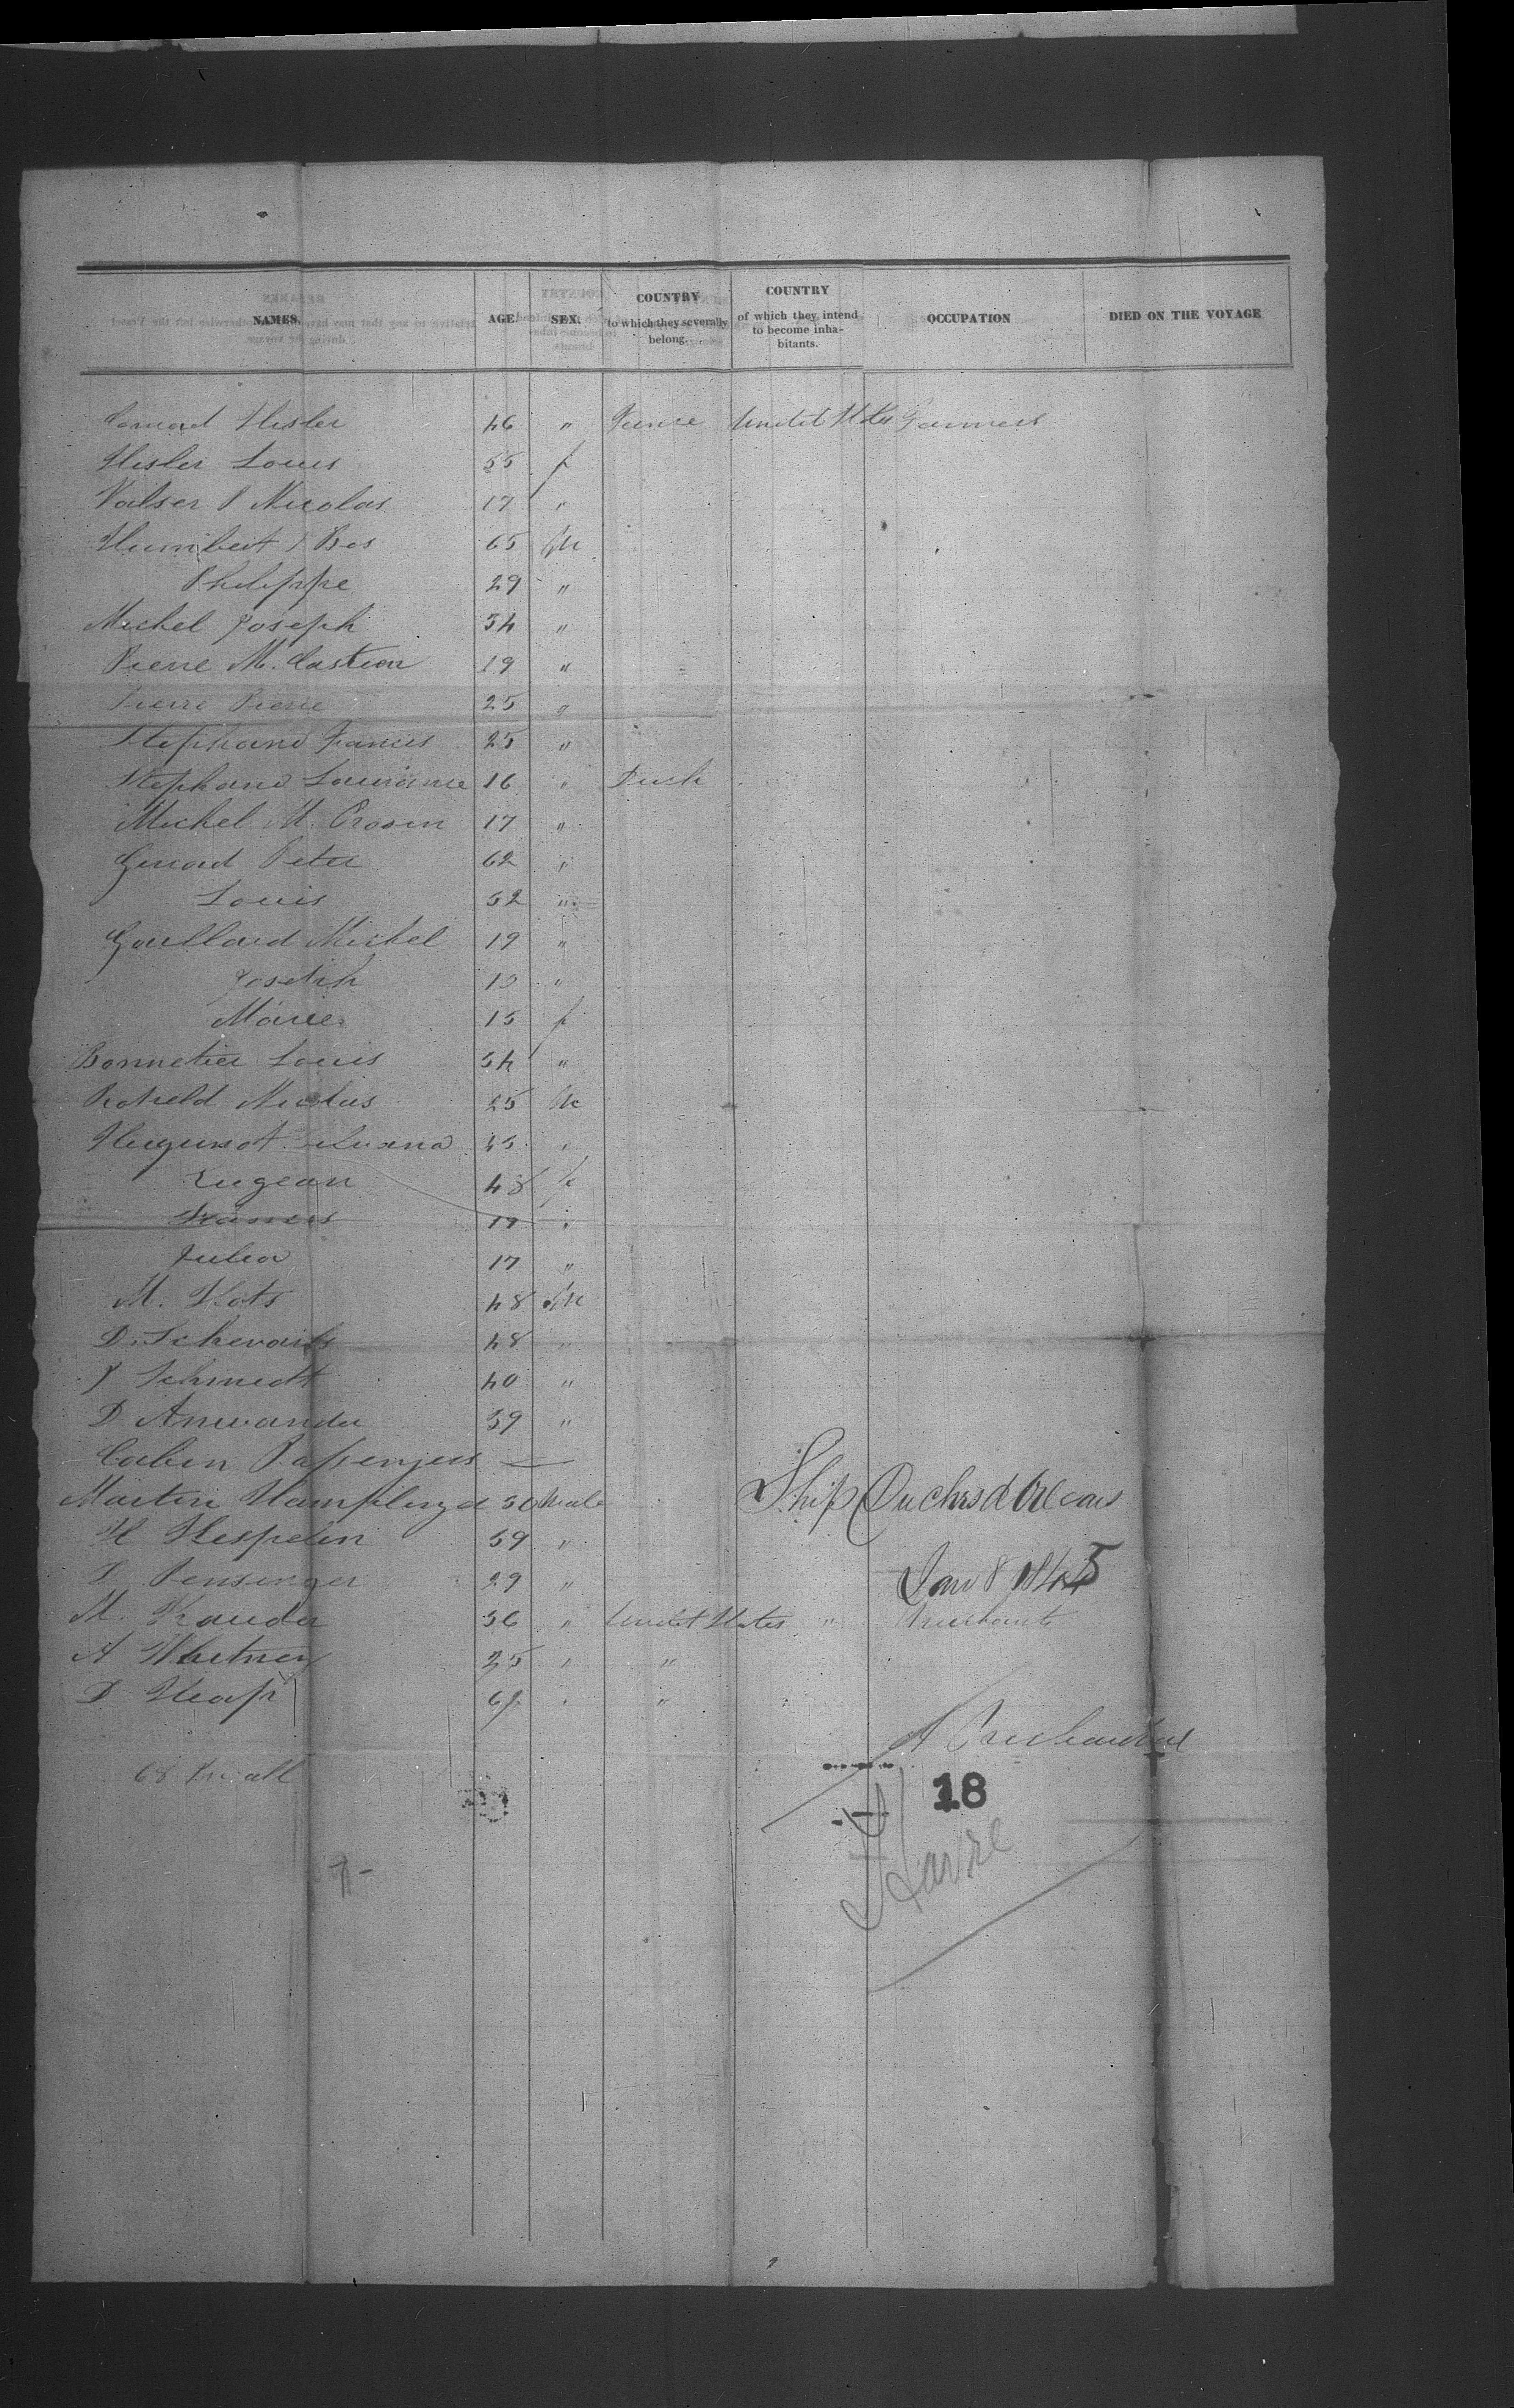 NAMES. AGE. SEX. COUNTRY to which they severally belong. COUNTRY of which they intend to become inhabitants. OCCUPATION DIED ON THE VOYAGE
Conrad Hisler 46 " France United States Farmers
Hisler Louis 55 f
Valser P Nicolas 17 "
Humbert J Bos 65 M
Philippe 29 "
Michel Joseph 54 "
Pierre M. Castion 19 "
Pierre Pierre 25 "
Stephano Francis 25 "
Stephano Lourance 16 " Duch
Michel M. Crosin 17 "
Gerrard Peter 62 "
Louis 52 "
Gaullard Michel 19 "
Joseph "
Marie 15 f
Bonnetier Louis 54 "
Nicolas 25 M
Hugunot "
Eugean 48 f
Francis 19 "
Julia 17 "
M. Hots 48 M
D. Schwarts 48 "
J Schmidt 40 "
D Anwander 39 "
Cabin Passengers —
Martin 50 Male
H Hespelin 39 "
Pensinger 29 "
M. Krauder 36 " United States " Merchants
A Whitney 25 " "
D Heap " "
Ship Duchss d Orleans
Jan 8 1845
68 In all
18
Havre